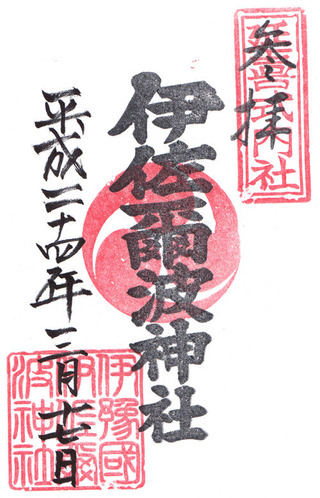 延喜式内社
参拝
伊佐爾波神社
平成二十四年三月十七日
伊豫國
伊佐爾
波神社